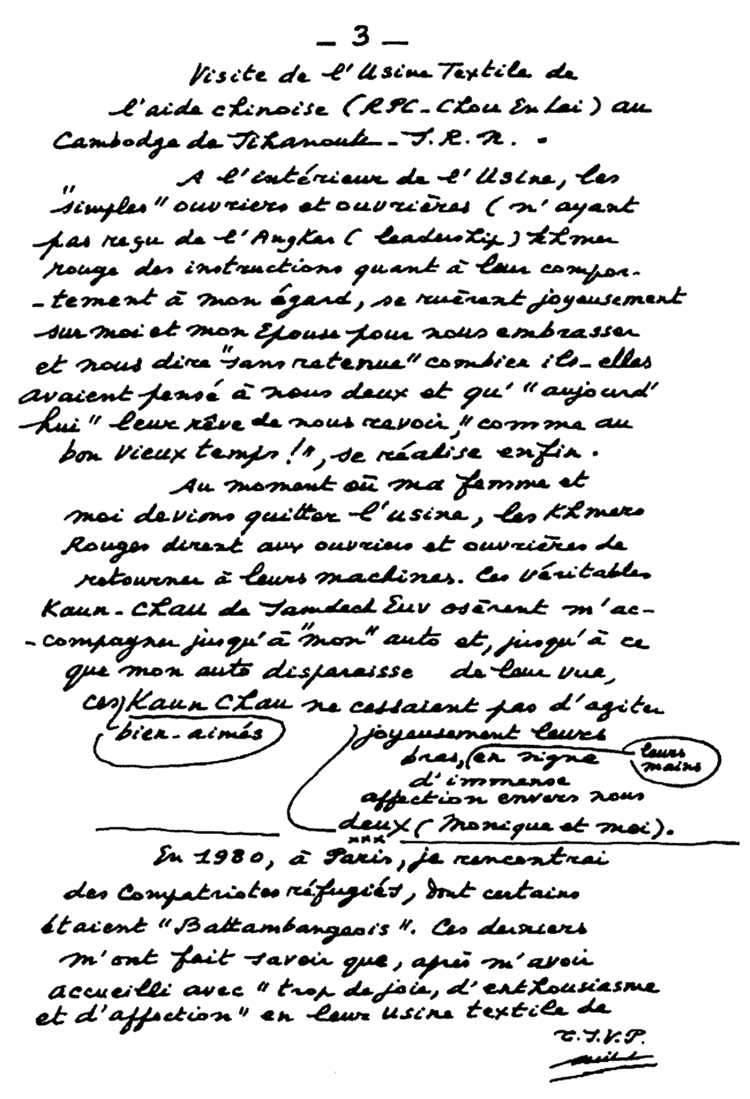 – 3 –
Visite de l'Usine Textile de
l'aide chinoise (RPC-Chou En Lai) au
Cambodge de Sihanouk - S.R.N. .
A l'intérieur de l'Usine, les
"simples" ouvriers et ouvrières (n'ayant
pas reçu de l'Angkar (leadership) khmer
rouge des instructions quant à leur compor-
-tement à mon égard, se ruèrent joyeusement
sur moi et mon Epouse pour nous embrasser
et nous dire "sans retenue" combien ils-elles
avaient pensé à nous deux et qu' "aujourd'
hui" leur rêve de nous revoir, "comme au
bon vieux temps !", se réalise enfin.
Au moment où ma femme et
moi devions quitter l'usine, les Khmers
Rouges dirent aux ouvriers et ouvrières de
retourner à leurs machines. Ces véritables
Kaun-Chau de Samdech Euv osèrent m'ac-
-compagner jusqu'à "mon" auto et, jusqu'à ce
que mon auto disparaisse de leur vue,
ces Kaun Chau ne cessaient pas d'agiter
bien-aimés
joyeusement leurs
bras, (en signe
leurs
mains
d'immense
affection envers nous
deux (Monique et moi).
xxx
En 1980, à Paris, je rencontrai
des Compatriotes réfugiés, dont certains
étaient "Battambangeois". Ces derniers
m'ont fait savoir que, après m'avoir
accueilli avec "trop de joie, d'enthousiasme
et d'affection" en leur usine textile de
T.S.V.P.